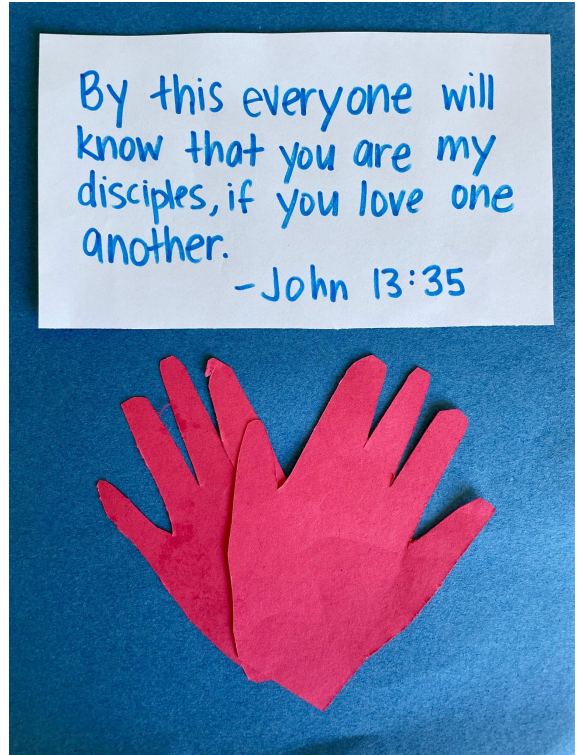 By this everyone will
know that you are my
disciples, if you love one
another.
-John 13:35